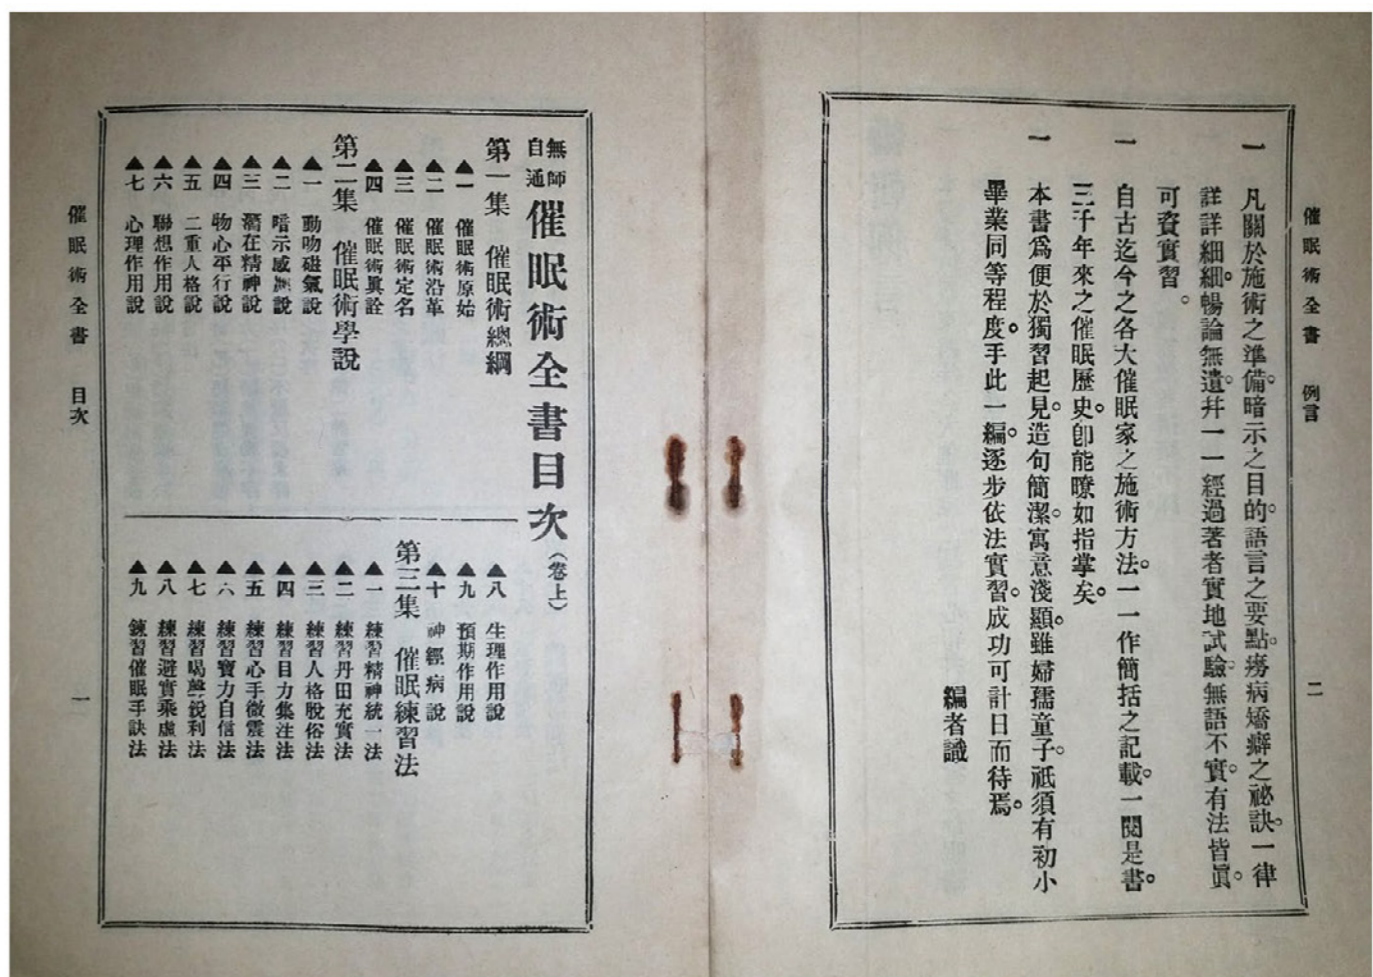 催眠術全書 例言
二
一 凡關於施術之準備。暗示之目的。語言之要點。療病矯癖之祕訣。一律
詳詳細細。暢論無遺。幷一一經過著者實地試驗。無語不實。有法皆眞。
可資實習。
一 自古迄今之各大催眠家之施術方法。一一作簡括之記載。一閱是書。
三千年來之催眠歷史。卽能暸如指掌矣。
一 本書爲便於獨習起見。造句簡潔。寓意淺顯。雖婦孺童子。祇須有初小
畢業同等程度。手此一編。逐步依法實習。成功可計日而待焉。
編者識
無師自通 催眠術全書目次(卷上)
第一集 催眠術總綱
▲一 催眠術原始
▲二 催眠術沿革
▲三 催眠術定名
▲四 催眠術眞詮
第二集 催眠術學說
▲一 動物磁氣說
▲二 暗示感應說
▲三 潛在精神說
▲四 物心平行說
▲五 二重人格說
▲六 聯想作用說
▲七 心理作用說
▲八 生理作用說
▲九 預期作用說
▲十 神經病說
第三集 催眠練習法
▲一 練習精神統一法
▲二 練習丹田充實法
▲三 練習人格脫俗法
▲四 練習目力集注法
▲五 練習心手微震法
▲六 練習寶力自信法
▲七 練習喝聲銳利法
▲八 練習避實乘虛法
▲九 鍊習催眠手訣法
催眠術全書 目次
一